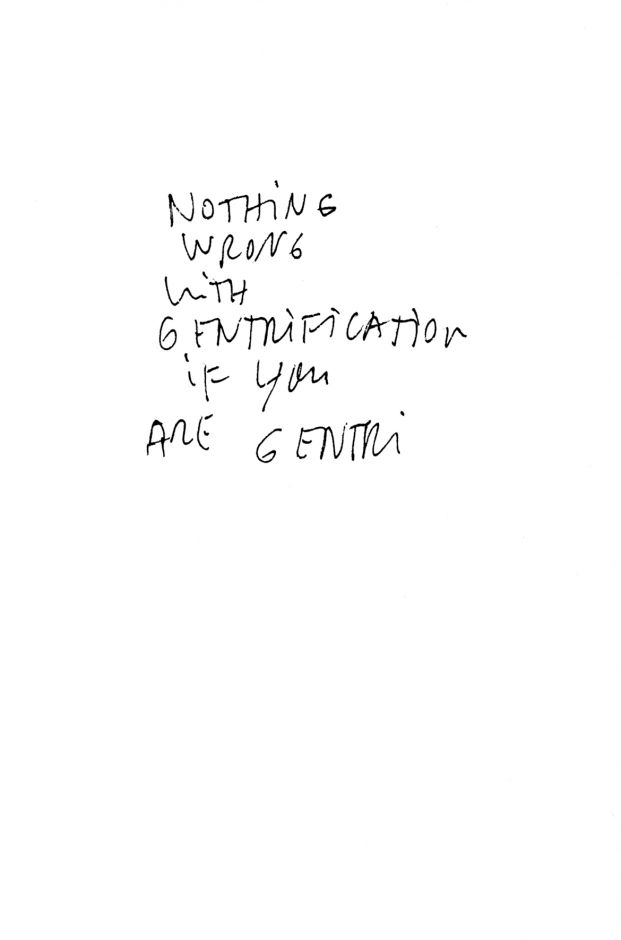 NOTHiNG
WRONG
WiTH
GENTRiFiCATiON
iF YOU
ARE GENTRi